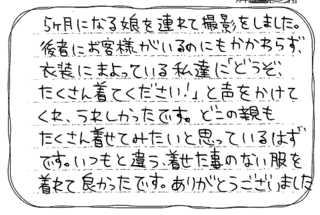 5ヶ月になる娘を連れて撮影をしました。
後者にお客様がいるのにもかかわらず、
衣装にまよっている私達に「どうぞ、
たくさん着てください!」と声をかけて
くれ、うれしかったです。どこの親も
たくさん着せてみたいと思っているはず
です。いつもと違う、着せた事のない服を
着れて良かったです。ありがとうございました